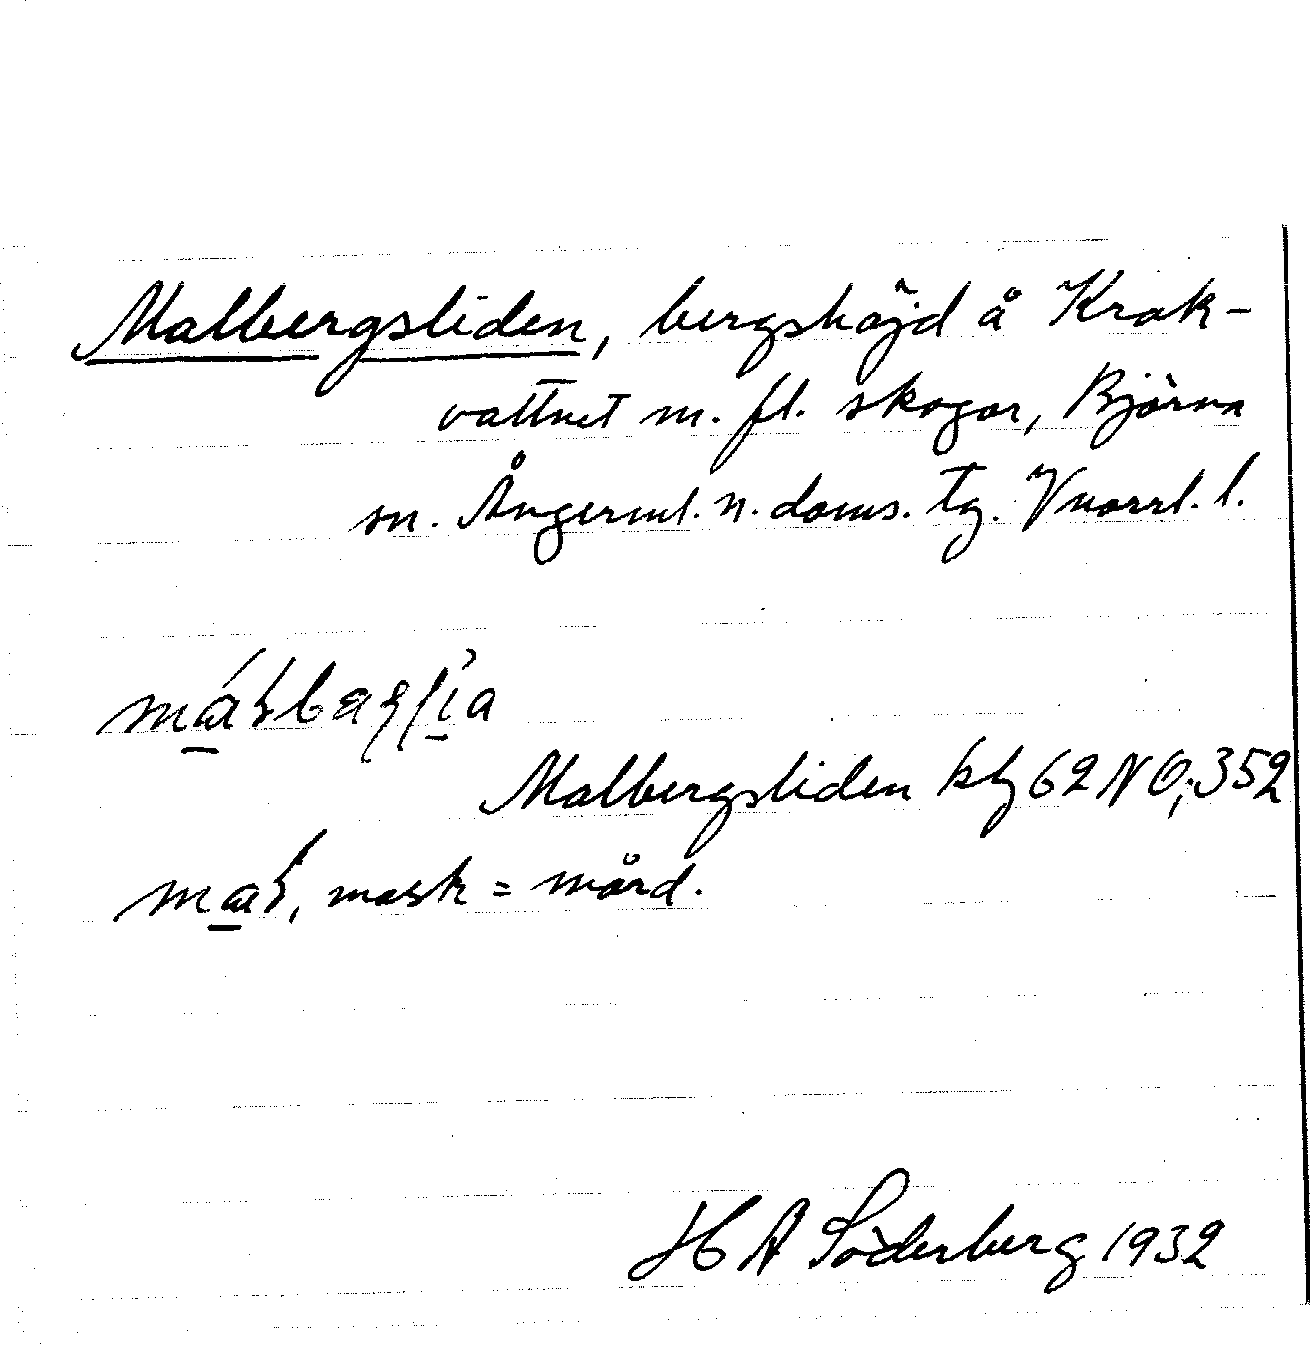 Malbergsliden, bergshöjd å Krok-
vattnet m. fl. skogar, Björna
sn. Ångerml. n. doms. tg. Vnorrl. l.
Malbergsliden kbl 62 NO; 352
mask = mård.
H A Söderberg 1932